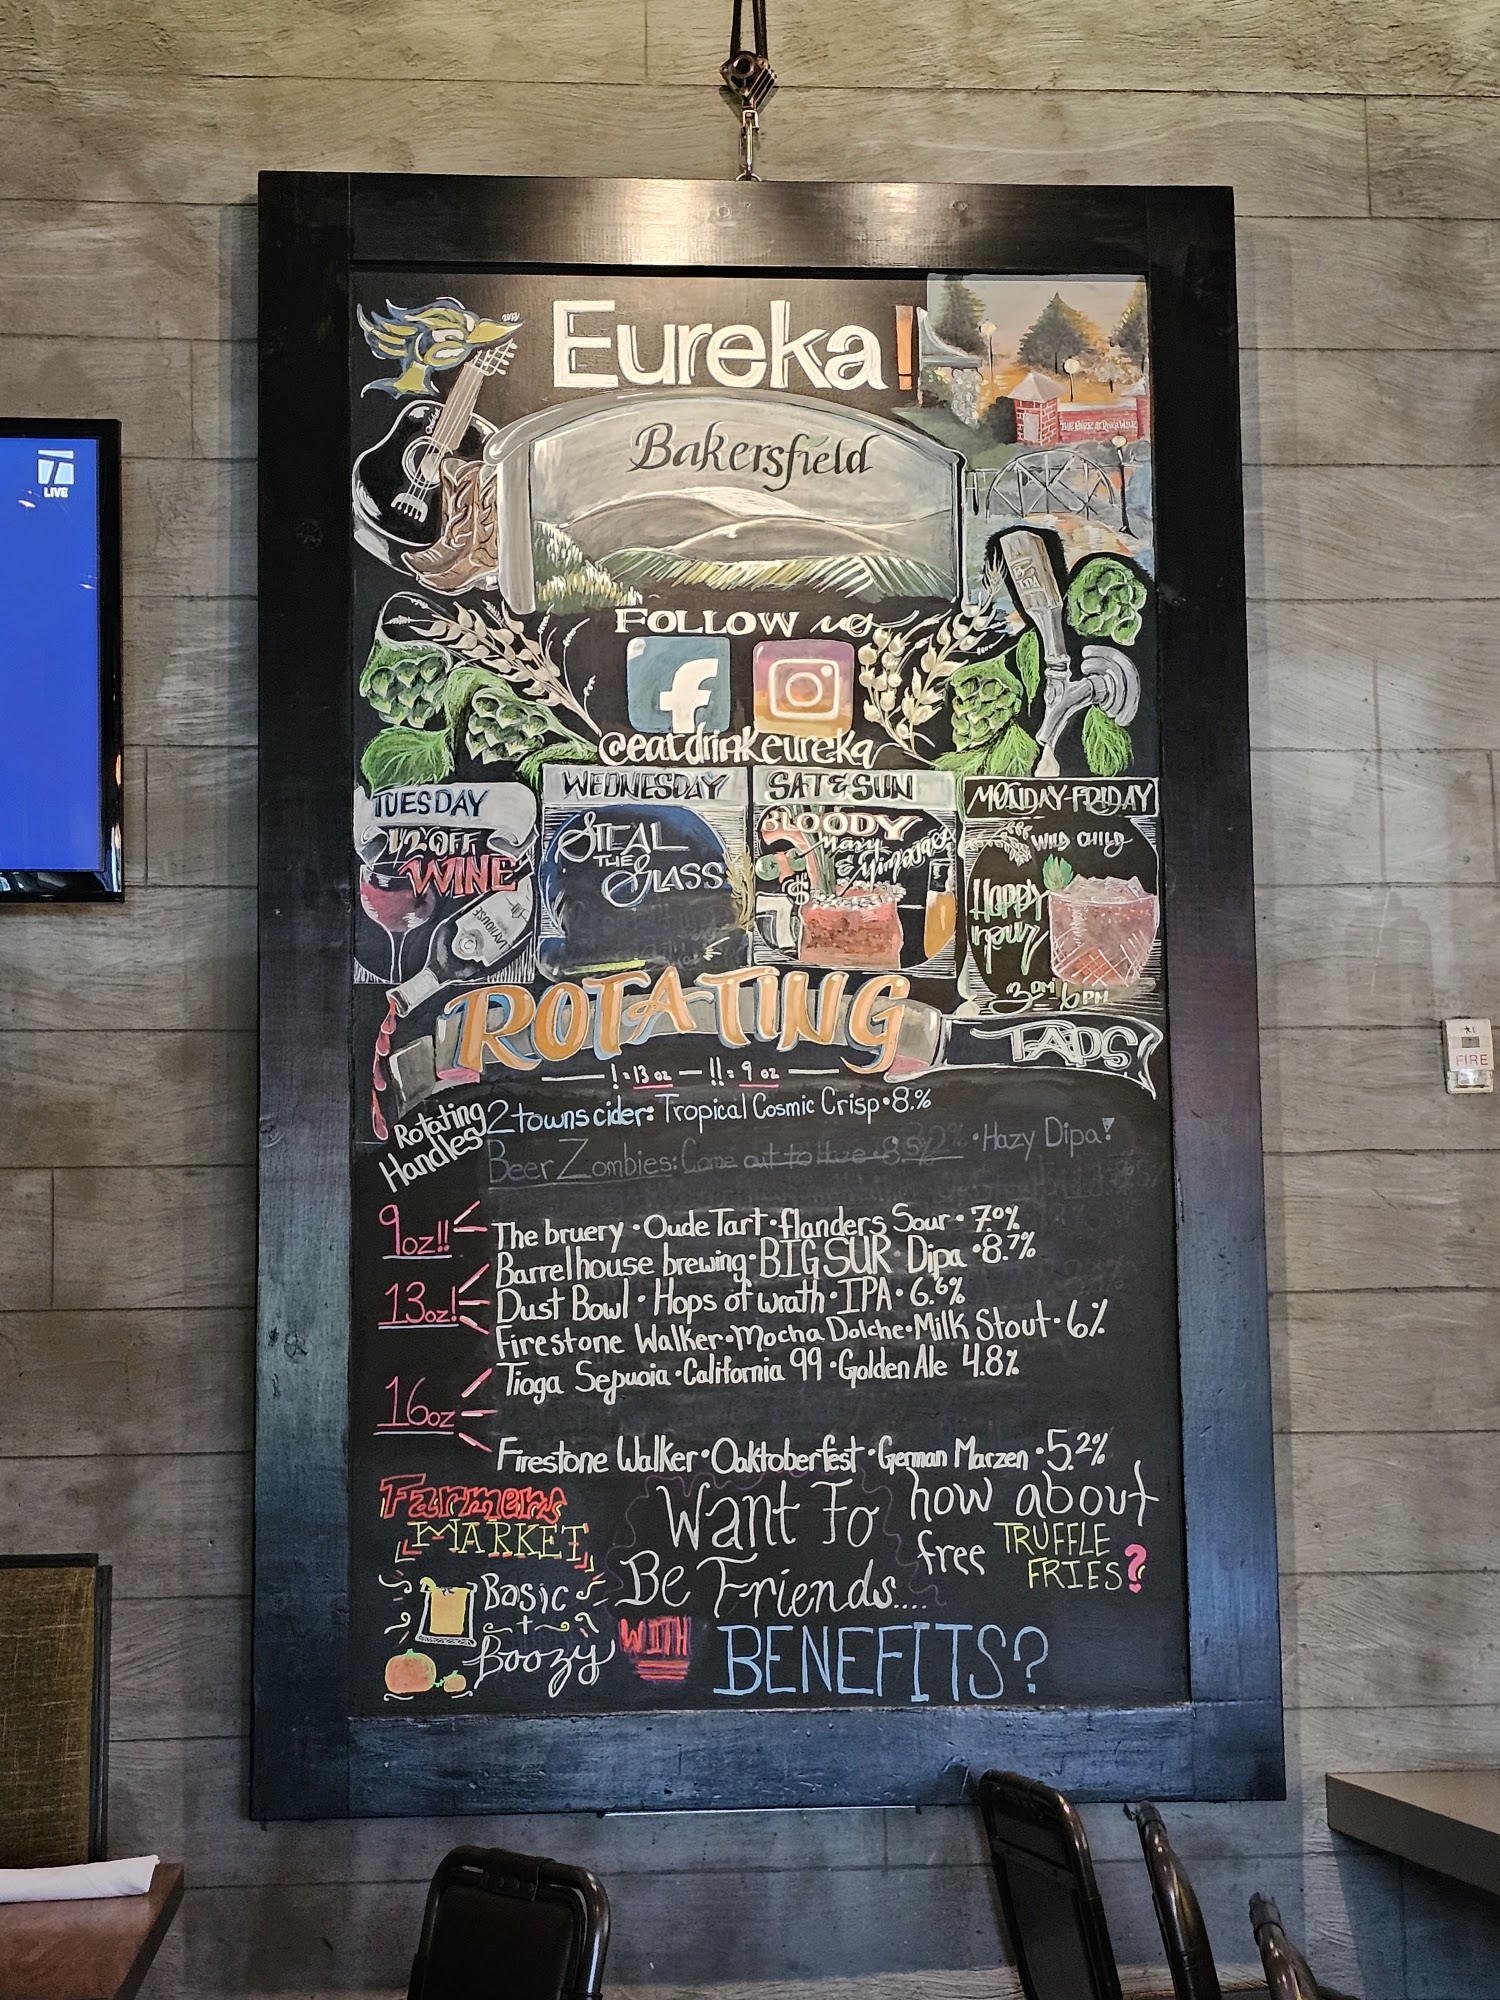 LIVE
2023
Eureka!
THE PARK AT RIVER WALK
Bakersfield
FOLLOW us
@eatdrinkeureka
TUESDAY
1/2 OFF
WINE
WEDNESDAY
STEAL
THE
GLASS
SAT & SUN
BLOODY
Mary
& Mimosas
$
MONDAY-FRIDAY
WILD CHILD
HAPPY
HOUR
3PM 6PM
ROTATING
TAPS
! = 13 oz — !! = 9 oz
Rotating
Handles
2 towns cider: Tropical Cosmic Crisp • 8.%
Beer Zombies: Come out to Haze • 8.5% • Hazy Dipa!
9oz!!
The bruery • Oude Tart • flanders Sour • 7.0%
Barrelhouse brewing • BIG SUR • Dipa • 8.7%
13oz!
Dust Bowl • Hops of wrath • IPA • 6.6%
Firestone Walker • Mocha Dolche • Milk Stout • 6%
Tioga Sequoia • California 99 • Golden Ale 4.8%
16oz
Firestone Walker • Oaktoberfest • German Marzen • 5.2%
Farmers
MARKET
Basic
+
Boozy
Want To
Be Friends....
WITH
BENEFITS?
how about
free TRUFFLE
FRIES?
FIRE